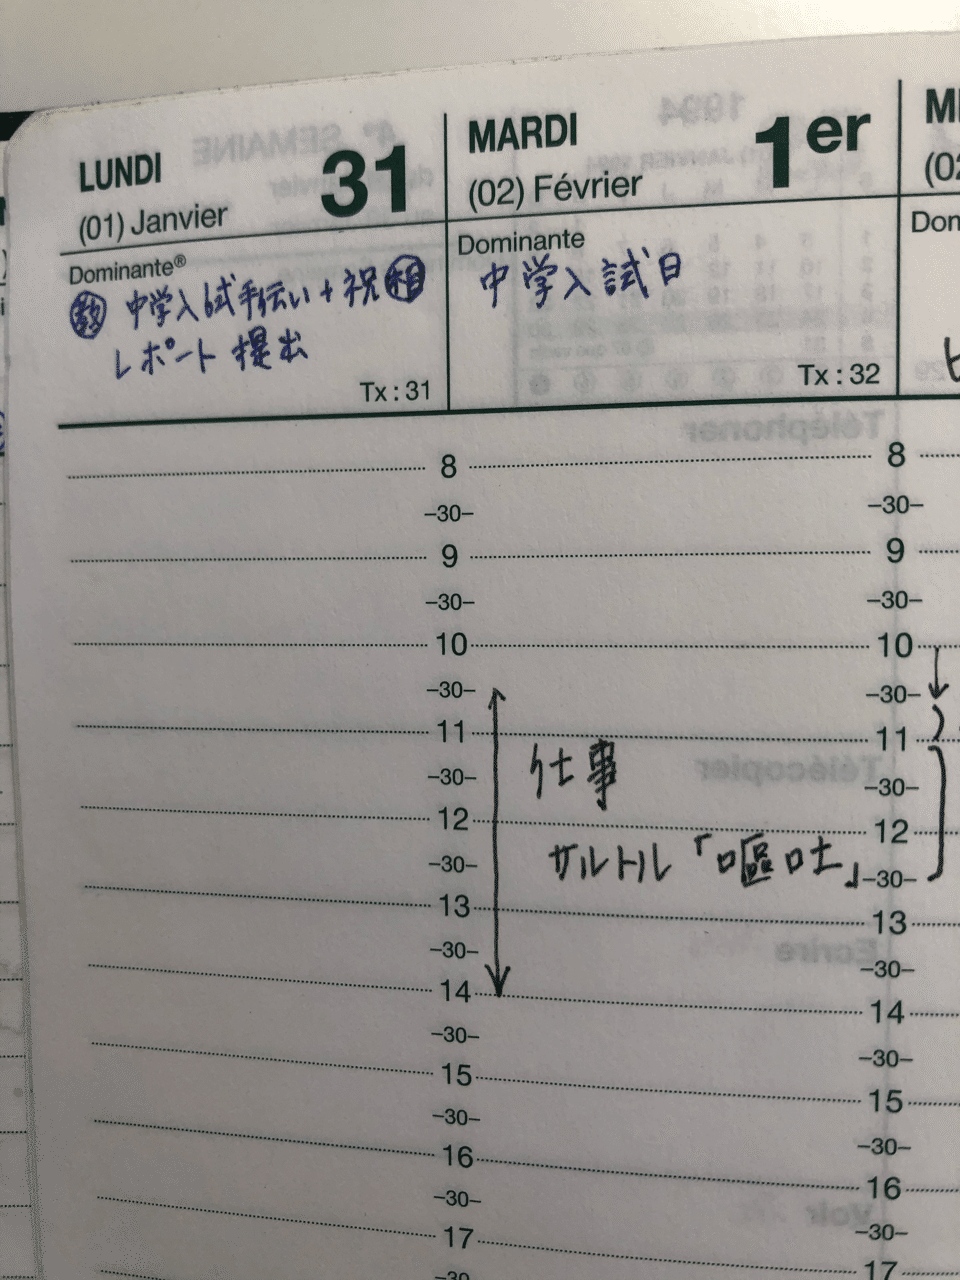 LUNDI 31
(01) Janvier
Dominante®
教 中学入試手伝い+祝 相
レポート 提出
Tx : 31
MARDI 1er
(02) Février
Dominante
中学入試日
Tx : 32
(02
Dom
8
–30–
9
–30–
10
–30–
11
–30–
12
–30–
13
–30–
14
–30–
15
–30–
16
–30–
17
–30
仕事
サルトル「嘔吐」
8
–30–
9
–30–
10
–30–
11
–30–
12
–30–
13
–30–
14
–30–
15
–30–
16
–30–
17
1994
4e SEMAINE
Téléphoner
Télécopier
Ecrire
Voir